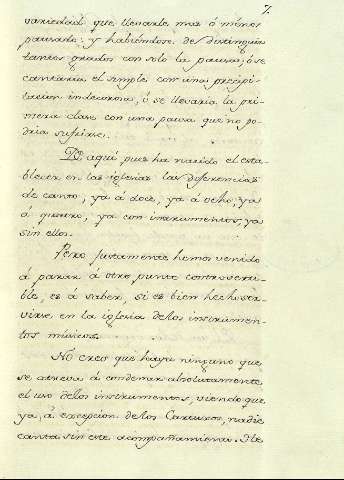 7.
variedad que llevarle mas ó menos
pausado: y habiéndose de distinguir
tantos grados con solo la pausa; ó se
cantaria el simple con una precipi-
tacion indecorosa, ó se llevaria la pri-
mera clase con una pausa que no po-
dria sufrirse.
De aquí pues ha nacido el esta-
blecer en las iglesias las diferencias
de canto, yá á doce, yá á ocho, ya
á quatro, ya con instrumentos, ya
sin ellos.
Pero justamente hemos venido
á parar á otro punto controverti-
ble, es á saber, si es bien hecho ser-
virse en la iglesia delos instrumen-
tos músicos.
No creo que haya ninguno que
se atreva á condenar absolutamente
el uso delos instrumentos, viendo que
ya, á excepcion delos Cartuxos, nadie
canta sin este acompañamiento.